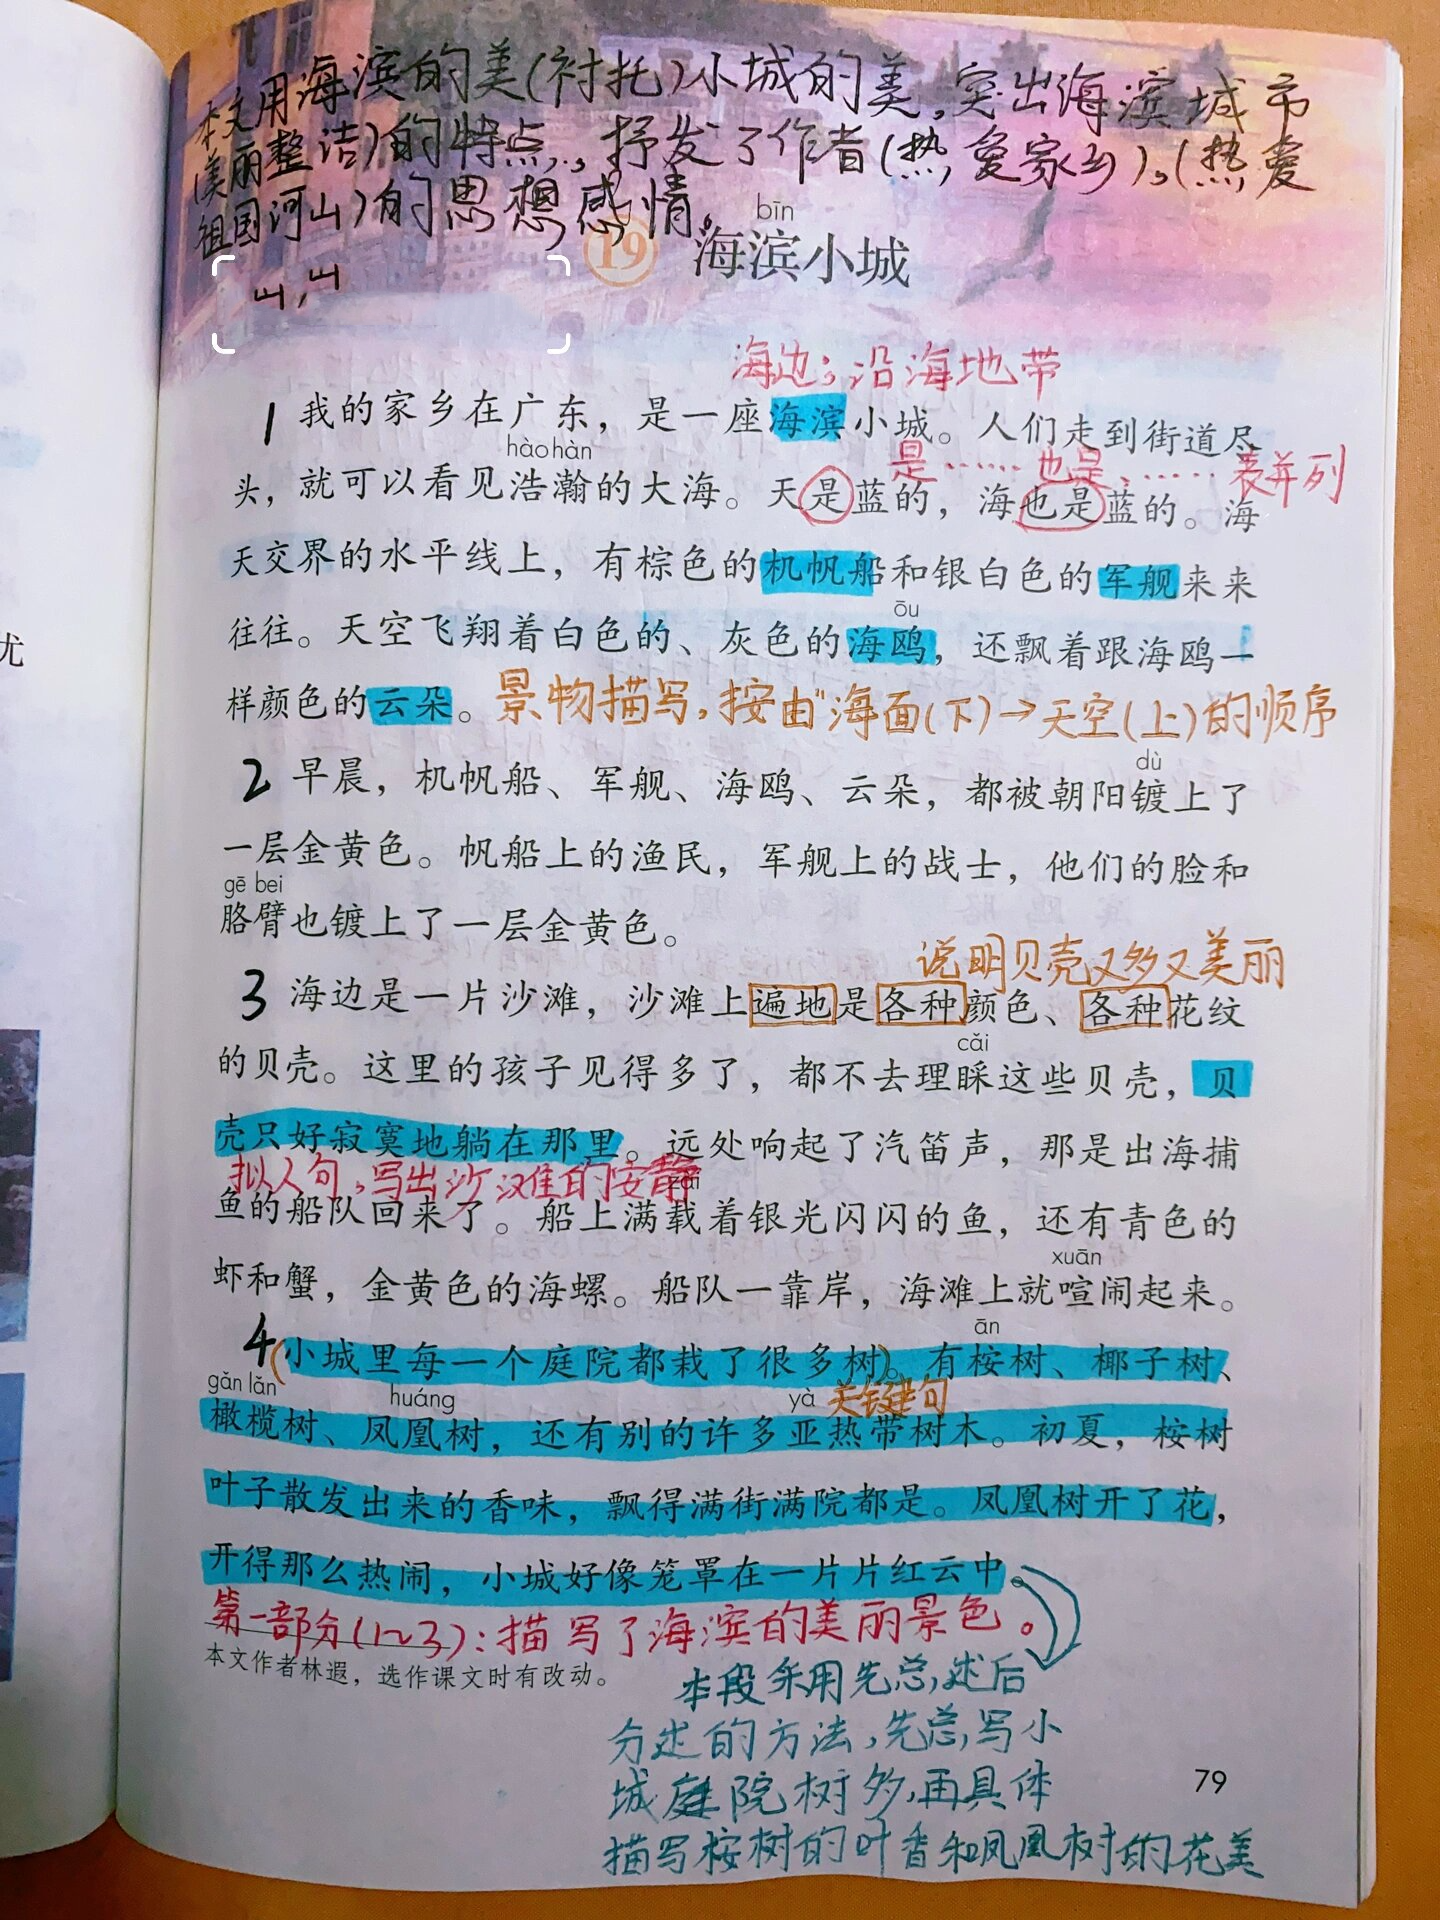 本文用海滨的美(衬托)小城的美,突出海滨城市
(美丽整洁)的特点,抒发了作者(热爱家乡)、(热爱
祖国河山)的思想感情。
bīn
19 海滨小城
海边;沿海地带
1 我的家乡在广东,是一座海滨小城。人们走到街道尽
hào hàn
是……也是……表并列
头,就可以看见浩瀚的大海。天是蓝的,海也是蓝的。海
天交界的水平线上,有棕色的机帆船和银白色的军舰来来
ōu
往往。天空飞翔着白色的、灰色的海鸥,还飘着跟海鸥一
样颜色的云朵。景物描写,按由"海面(下)→天空(上)的顺序
dù
2 早晨,机帆船、军舰、海鸥、云朵,都被朝阳镀上了
一层金黄色。帆船上的渔民,军舰上的战士,他们的脸和
gē bei
胳臂也镀上了一层金黄色。
说明贝壳又多又美丽
3 海边是一片沙滩,沙滩上遍地是各种颜色、各种花纹
cǎi
的贝壳。这里的孩子见得多了,都不去理睬这些贝壳,贝
壳只好寂寞地躺在那里。远处响起了汽笛声,那是出海捕
拟人句,写出沙滩的安静
zài
鱼的船队回来了。船上满载着银光闪闪的鱼,还有青色的
xuān
虾和蟹,金黄色的海螺。船队一靠岸,海滩上就喧闹起来。
ān
4 (小城里每一个庭院都栽了很多树)。有桉树、椰子树、
gǎn lǎn huáng yà 关键句
橄榄树、凤凰树,还有别的许多亚热带树木。初夏,桉树
叶子散发出来的香味,飘得满街满院都是。凤凰树开了花,
开得那么热闹,小城好像笼罩在一片片红云中。
第一部分(1~3):描写了海滨的美丽景色。
本文作者林遐,选作课文时有改动。
本段采用先总述后
分述的方法,先总写小
城庭院树多,再具体
描写桉树的叶香和凤凰树的花美
79
尤